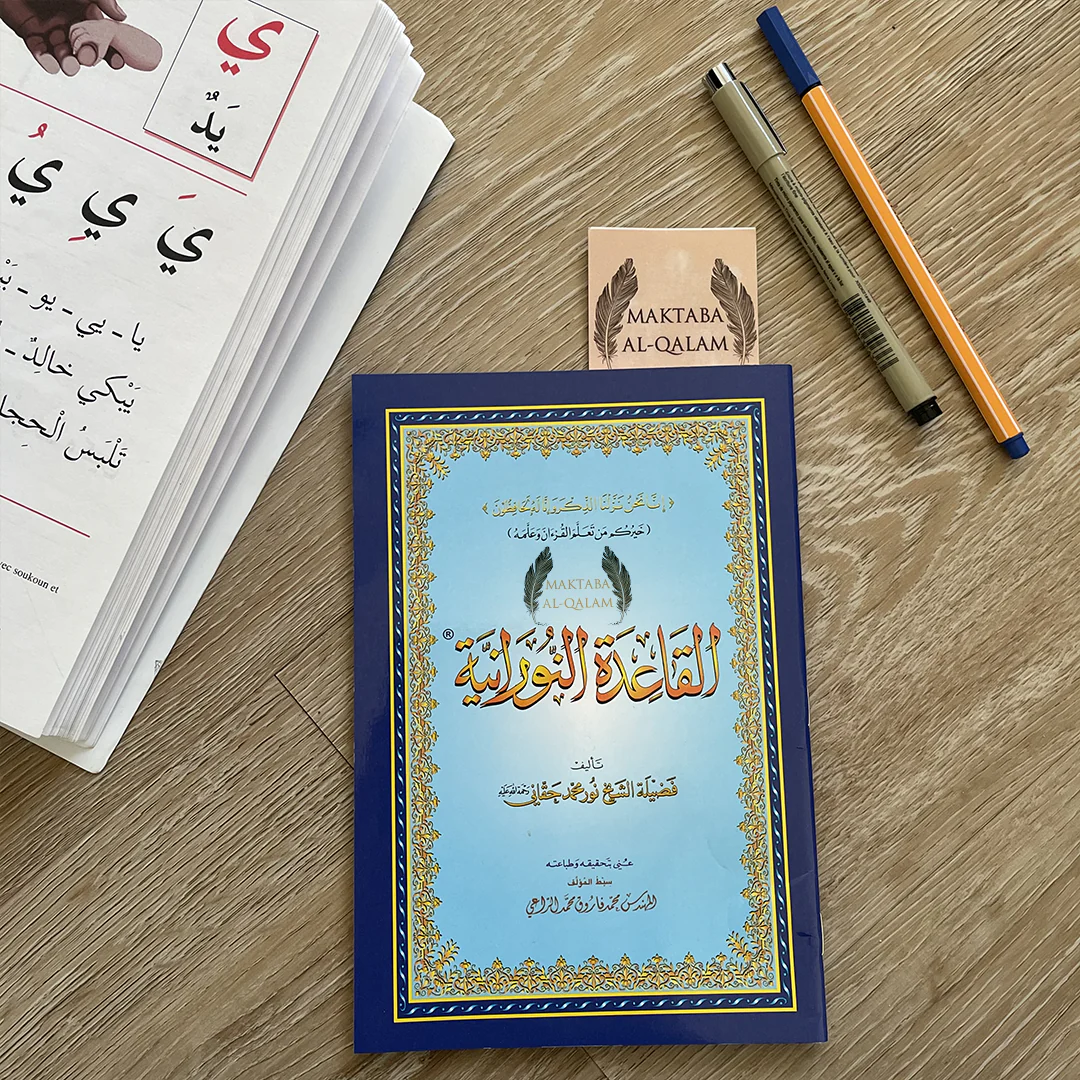 ي
يَدٌ
يَ يِ يُ
يا - يي - يو -
يَبْكي خالِدٌ -
تَلْبَسُ الْحِجا
ec soukoun et
MAKTABA
AL-QALAM
﴿ إِنَّا نَحْنُ نَزَّلْنَا الذِّكْرَ وَإِنَّا لَهُ لَحَافِظُونَ ﴾
(خَيْرُكُم مَن تَعَلَّمَ القُرْءَانَ وَعَلَّمَهُ)
MAKTABA
AL-QALAM
القَاعِدَة النُّورَانِيَّة ®
تأليف
فَضِيلَة الشَّيْخ نُور محمَّد حَقَّاني رَحْمَةُ اللَّهِ عَلَيْه
عُني بتحقيقه وطباعته
سِبْط المُؤلِّف
المهندس محمد فاروق محمد الراعي